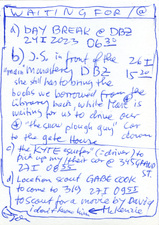 WAITING FOR / @
a) DAY BREAK @ DBZ
24 I 2023 06.30
b) J.S. in front of the 26 I
main monastery DBZ 15-30
she still has to bring the
books we borrowed from the
library back, while Matt is
waiting for us to drive our
"the snow plough guy" car
to the gate House down
c) the KYTE surfer (-driver) to
put up my letter car @ 345 MAIN ST.
27 I 08 55
d) Location scout GABE COOK
to come to 319 27 I 09 55
to scout for a movie by David
I don't know him McKenzie